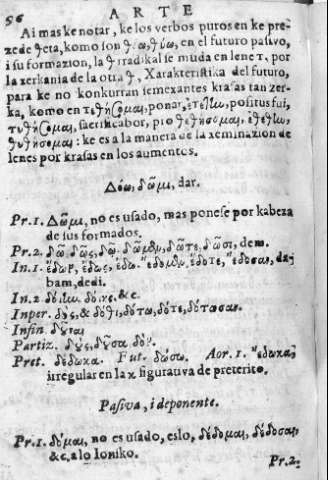 56 ARTE
Ai mas ke notar, ke los verbos puros en ke pre-
zede θeta, komo son θέω, θύω, en el futuro pasivo,
i su formazion, la θ radikal se muda en lene τ, por
la zerkania de la otra θ, Xarakteristika del futuro,
para ke no konkurran semexantes krasas tan zer-
ka, komo en τεθήσομαι, ponar, ἐτέθην, positus fui,
τυθήσομαι, sacrificabor, pro θεθήσομαι, ἐθέθην,
θυθήσομαι: ke es a la manera de la xeminazion de
lenes por krasas en los aumentos.
Δόω, δῶμι, dar.
Pr. 1. Δῶμι, no es usado, mas ponese por kabeza
de sus formados.
Pr. 2. δῶ, δῷς, δῷ. δῶμεν, δῶτε, δῶσι, dem.
In. 1. ἔδων, ἔδως, ἔδω. ἔδομεν, ἔδοτε, ἔδοσαν, da-
bam, dedi.
In. 2. δοίην, δοίης, &c.
Inper. δὸς, & δόθι, δότω, δότε, δότωσαν.
Infin. δοῦναι.
Partiz. δοὺς, δοῦσα, δόν.
Pret. δέδωκα. Fut. δώσω. Aor. 1. ἔδωκα,
irregular en la κ figurativa de preterito.
Pasiva, i deponente.
Pr. 1. δόμαι, no es usado, eslo, δίδομαι, δίδοσαι,
&c, a lo Ioniko.
Pr. 2.